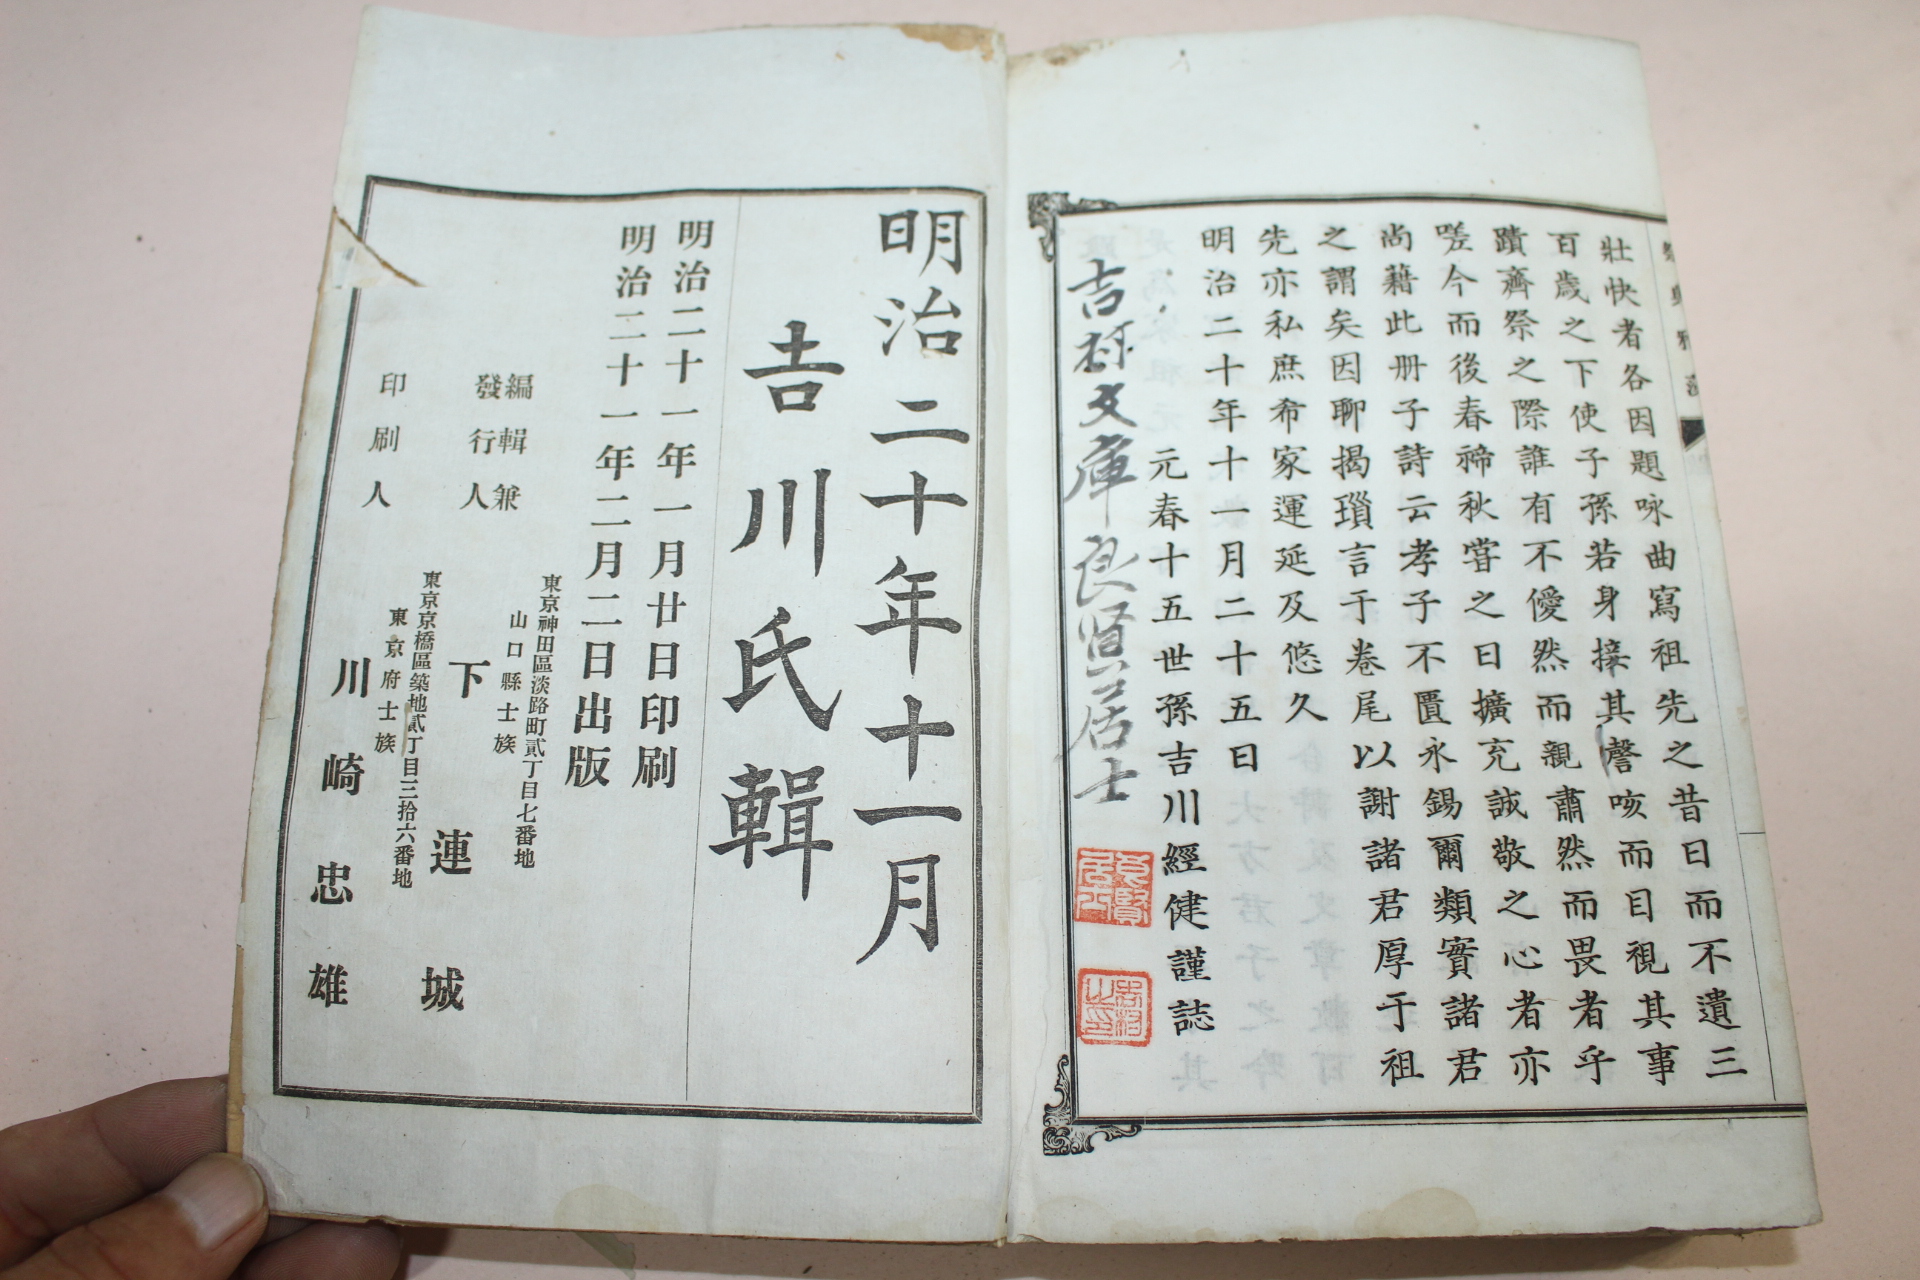 壯快者各因題咏曲寫祖先之昔日而不遺三
百歳之下使子孫若身接其謦咳而目視其事
蹟齊祭之際誰有不優然而親肅然而畏者乎
嗟今而後春禘秋嘗之日擴充誠敬之心者亦
尚藉此册子詩云孝子不匱永錫爾類實諸君
之謂矣因聊揭瑣言于卷尾以謝諸君厚于祖
先亦私庶希家運延及悠久
明治二十年十一月二十五日
元春十五世孫吉川經健謹誌
吉村文庫良賢居士
明治二十年十一月
吉川氏輯
明治二十一年一月廿日印刷
明治二十一年二月二日出版
東京神田區淡路町貳丁目七番地
山口縣士族
編輯兼
發行人
下連城
東京京橋區築地貳丁目三拾六番地
東京府士族
印刷人
川崎忠雄